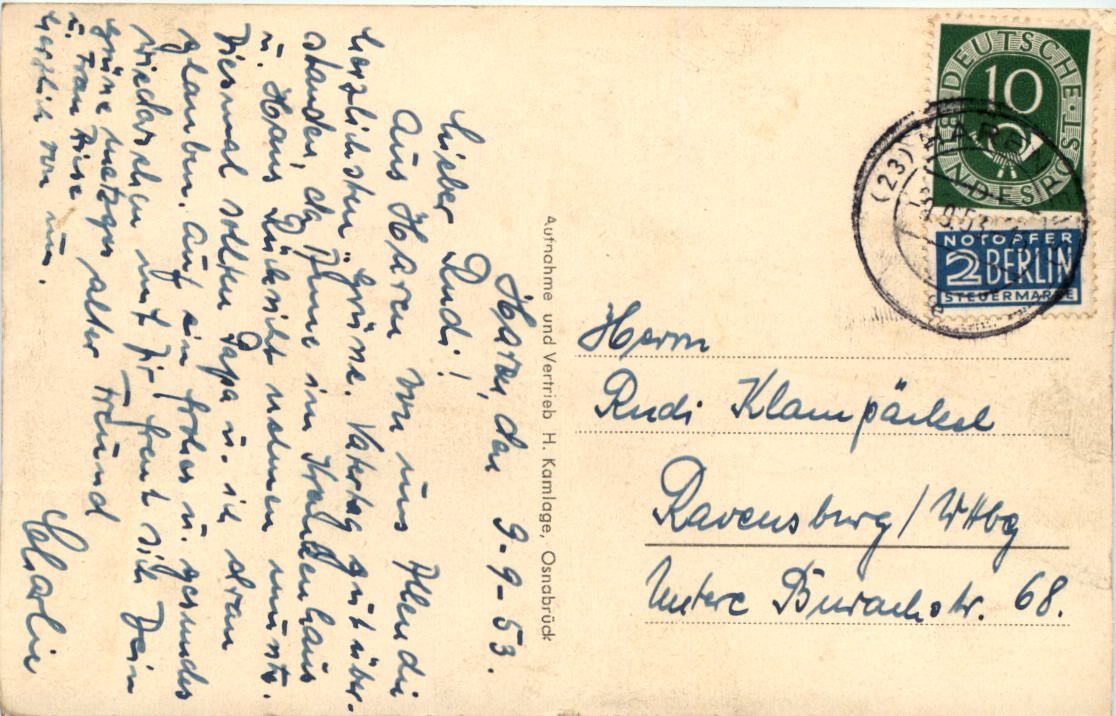 Haren, den 9-9-53.
Lieber Rudi!
Aus Haren von uns Allen die
herzlichsten Grüße. Vatertag gut über-
standen, da Anne im Krankenhaus
u. Hans Rücksicht nehmen musste.
Diesmal sollten Papa u. ich dran
glauben. Auf ein frohes u. gesundes
Wiedersehen mit Dir freut sich Dein
alter Freund
Charlie
u. Frau
herzlich von uns.
Aufnahme und Vertrieb H. Kamlage, Osnabrück
DEUTSCHE BUNDESPOST
10
NOTOPFER
2 BERLIN
STEUERMARKE
(23) HAREN
9.53
Herrn
Rudi Klampäckel
Ravensburg / Wttbg
Untere Burachstr. 68.